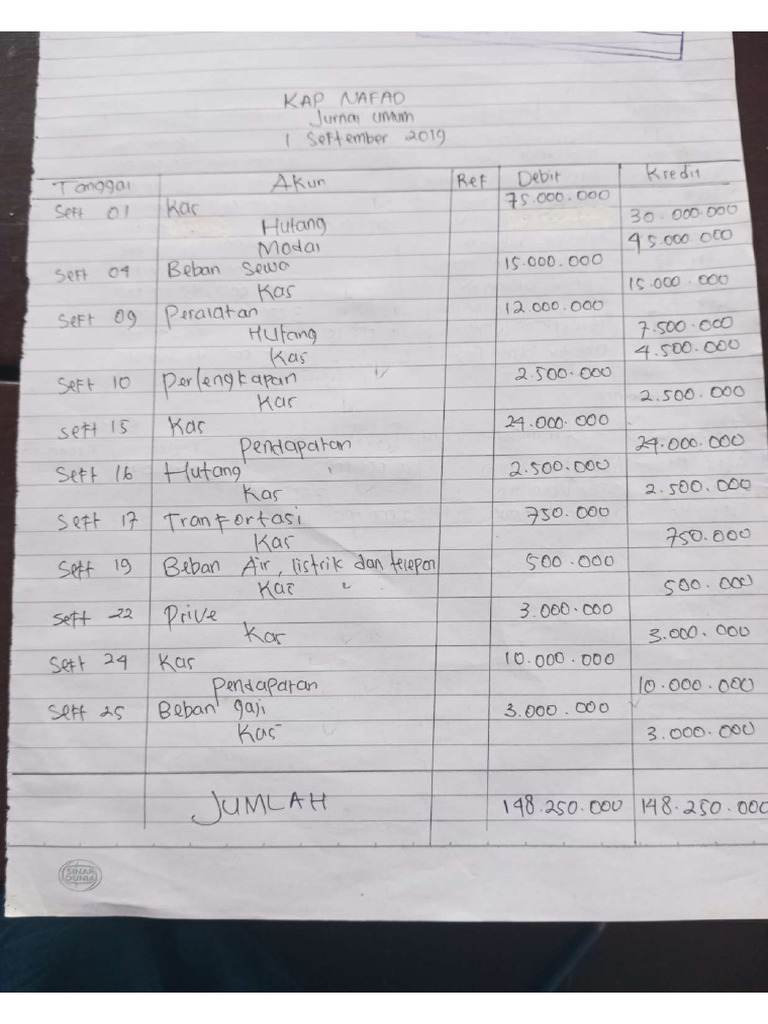 KAP NAFAO
Jurnal Umum
1 September 2019
Tanggal Akun Ref Debit Kredit
Seft 01 Kas 75.000.000
Hutang 30.000.000
Modal 45.000.000
Seft 04 Beban Sewa 15.000.000
Kas 15.000.000
Seft 09 Peralatan 12.000.000
Hutang 7.500.000
Kas 4.500.000
Seft 10 Perlengkapan 2.500.000
Kas 2.500.000
Seft 15 Kas 24.000.000
Pendapatan 24.000.000
Seft 16 Hutang 2.500.000
Kas 2.500.000
Seft 17 Tranfortasi 750.000
Kas 750.000
Seft 19 Beban Air, listrik dan telepon 500.000
Kas 500.000
Seft 22 Prive 3.000.000
Kas 3.000.000
Seft 24 Kas 10.000.000
Pendapatan 10.000.000
Seft 25 Beban gaji 3.000.000
Kas 3.000.000
JUMLAH 148.250.000 148.250.000
SINAR
DUNIA